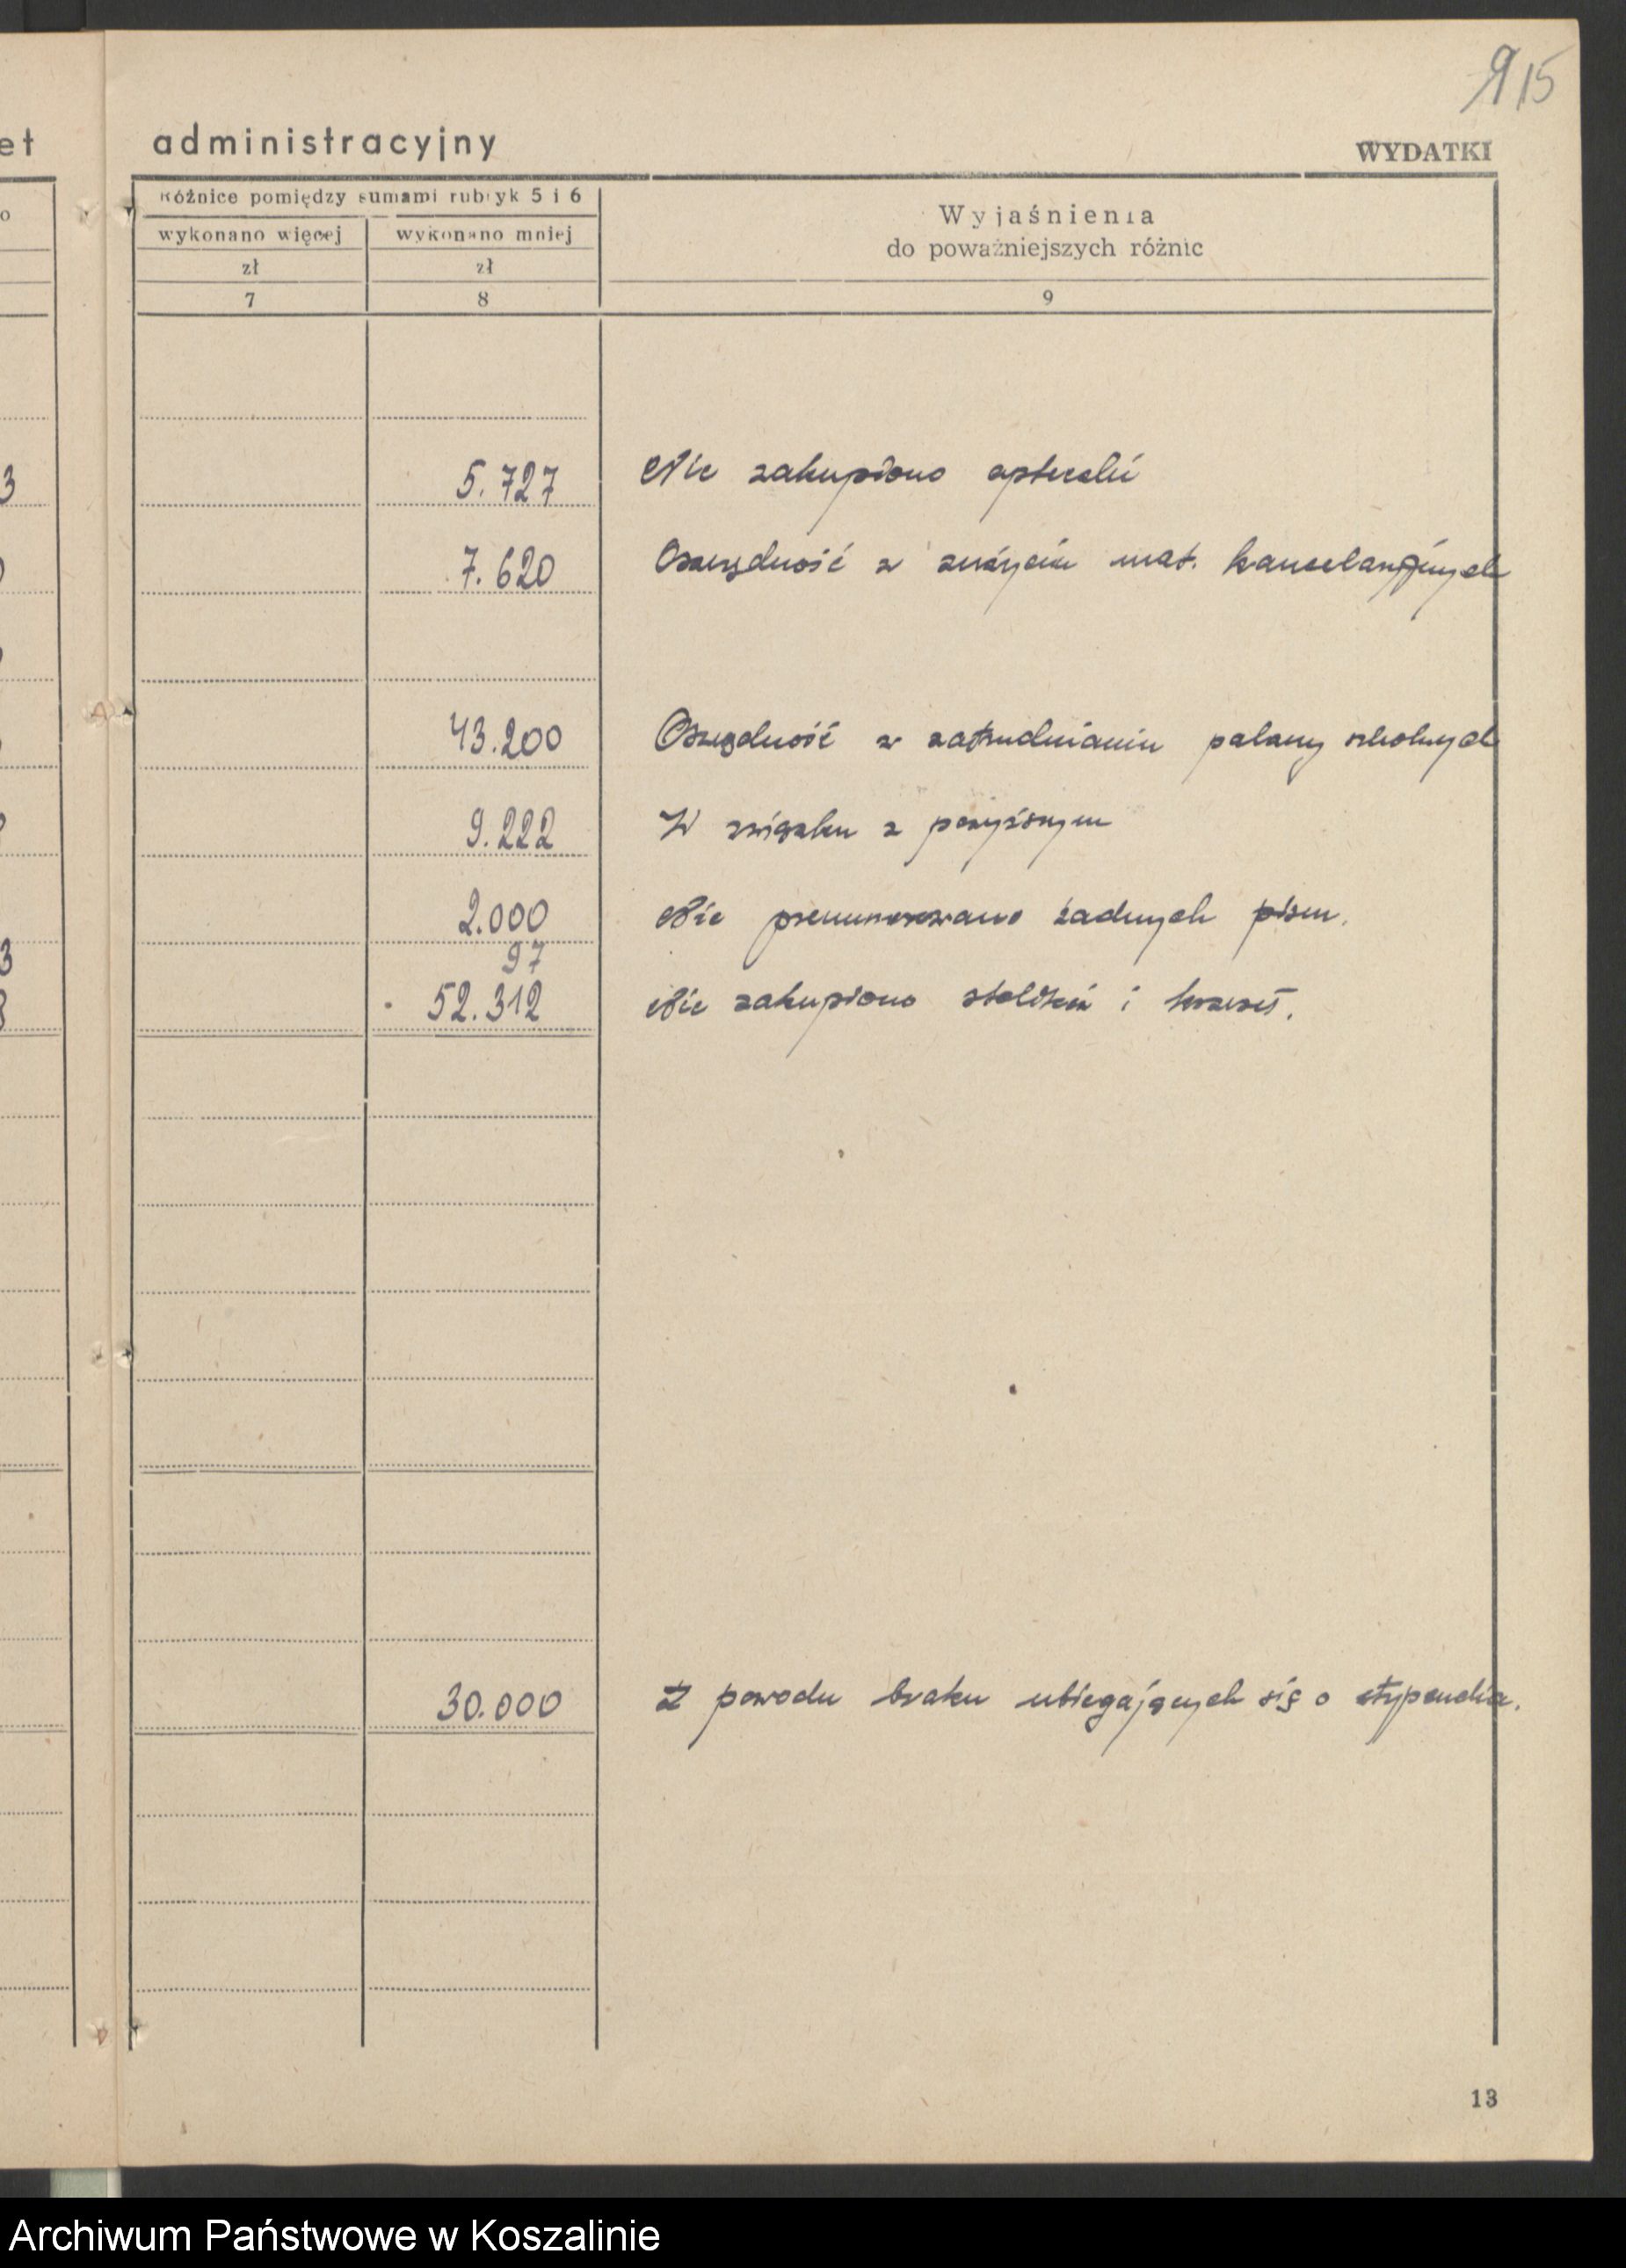 915
et administracyjny WYDATKI
Różnice pomiędzy sumami rubryk 5 i 6
Wyjaśnienia
do poważniejszych różnic
o wykonano więcej wykonano mniej
zł zł
7 8 9
3 5.727 Nie zakupiono apteczki
7.620 Oszczędność w zużyciu mat. kancelaryjnych
43.200 Oszczędność w zatrudnianiu palaczy szkolnych
9.222 W związku z powyższym
2.000 Nie prenumerowano żadnych pism.
3 97
52.312 Nie zakupiono stolików i krzeseł.
30.000 Z powodu braku ubiegających się o stypendia.
13
Archiwum Państwowe w Koszalinie